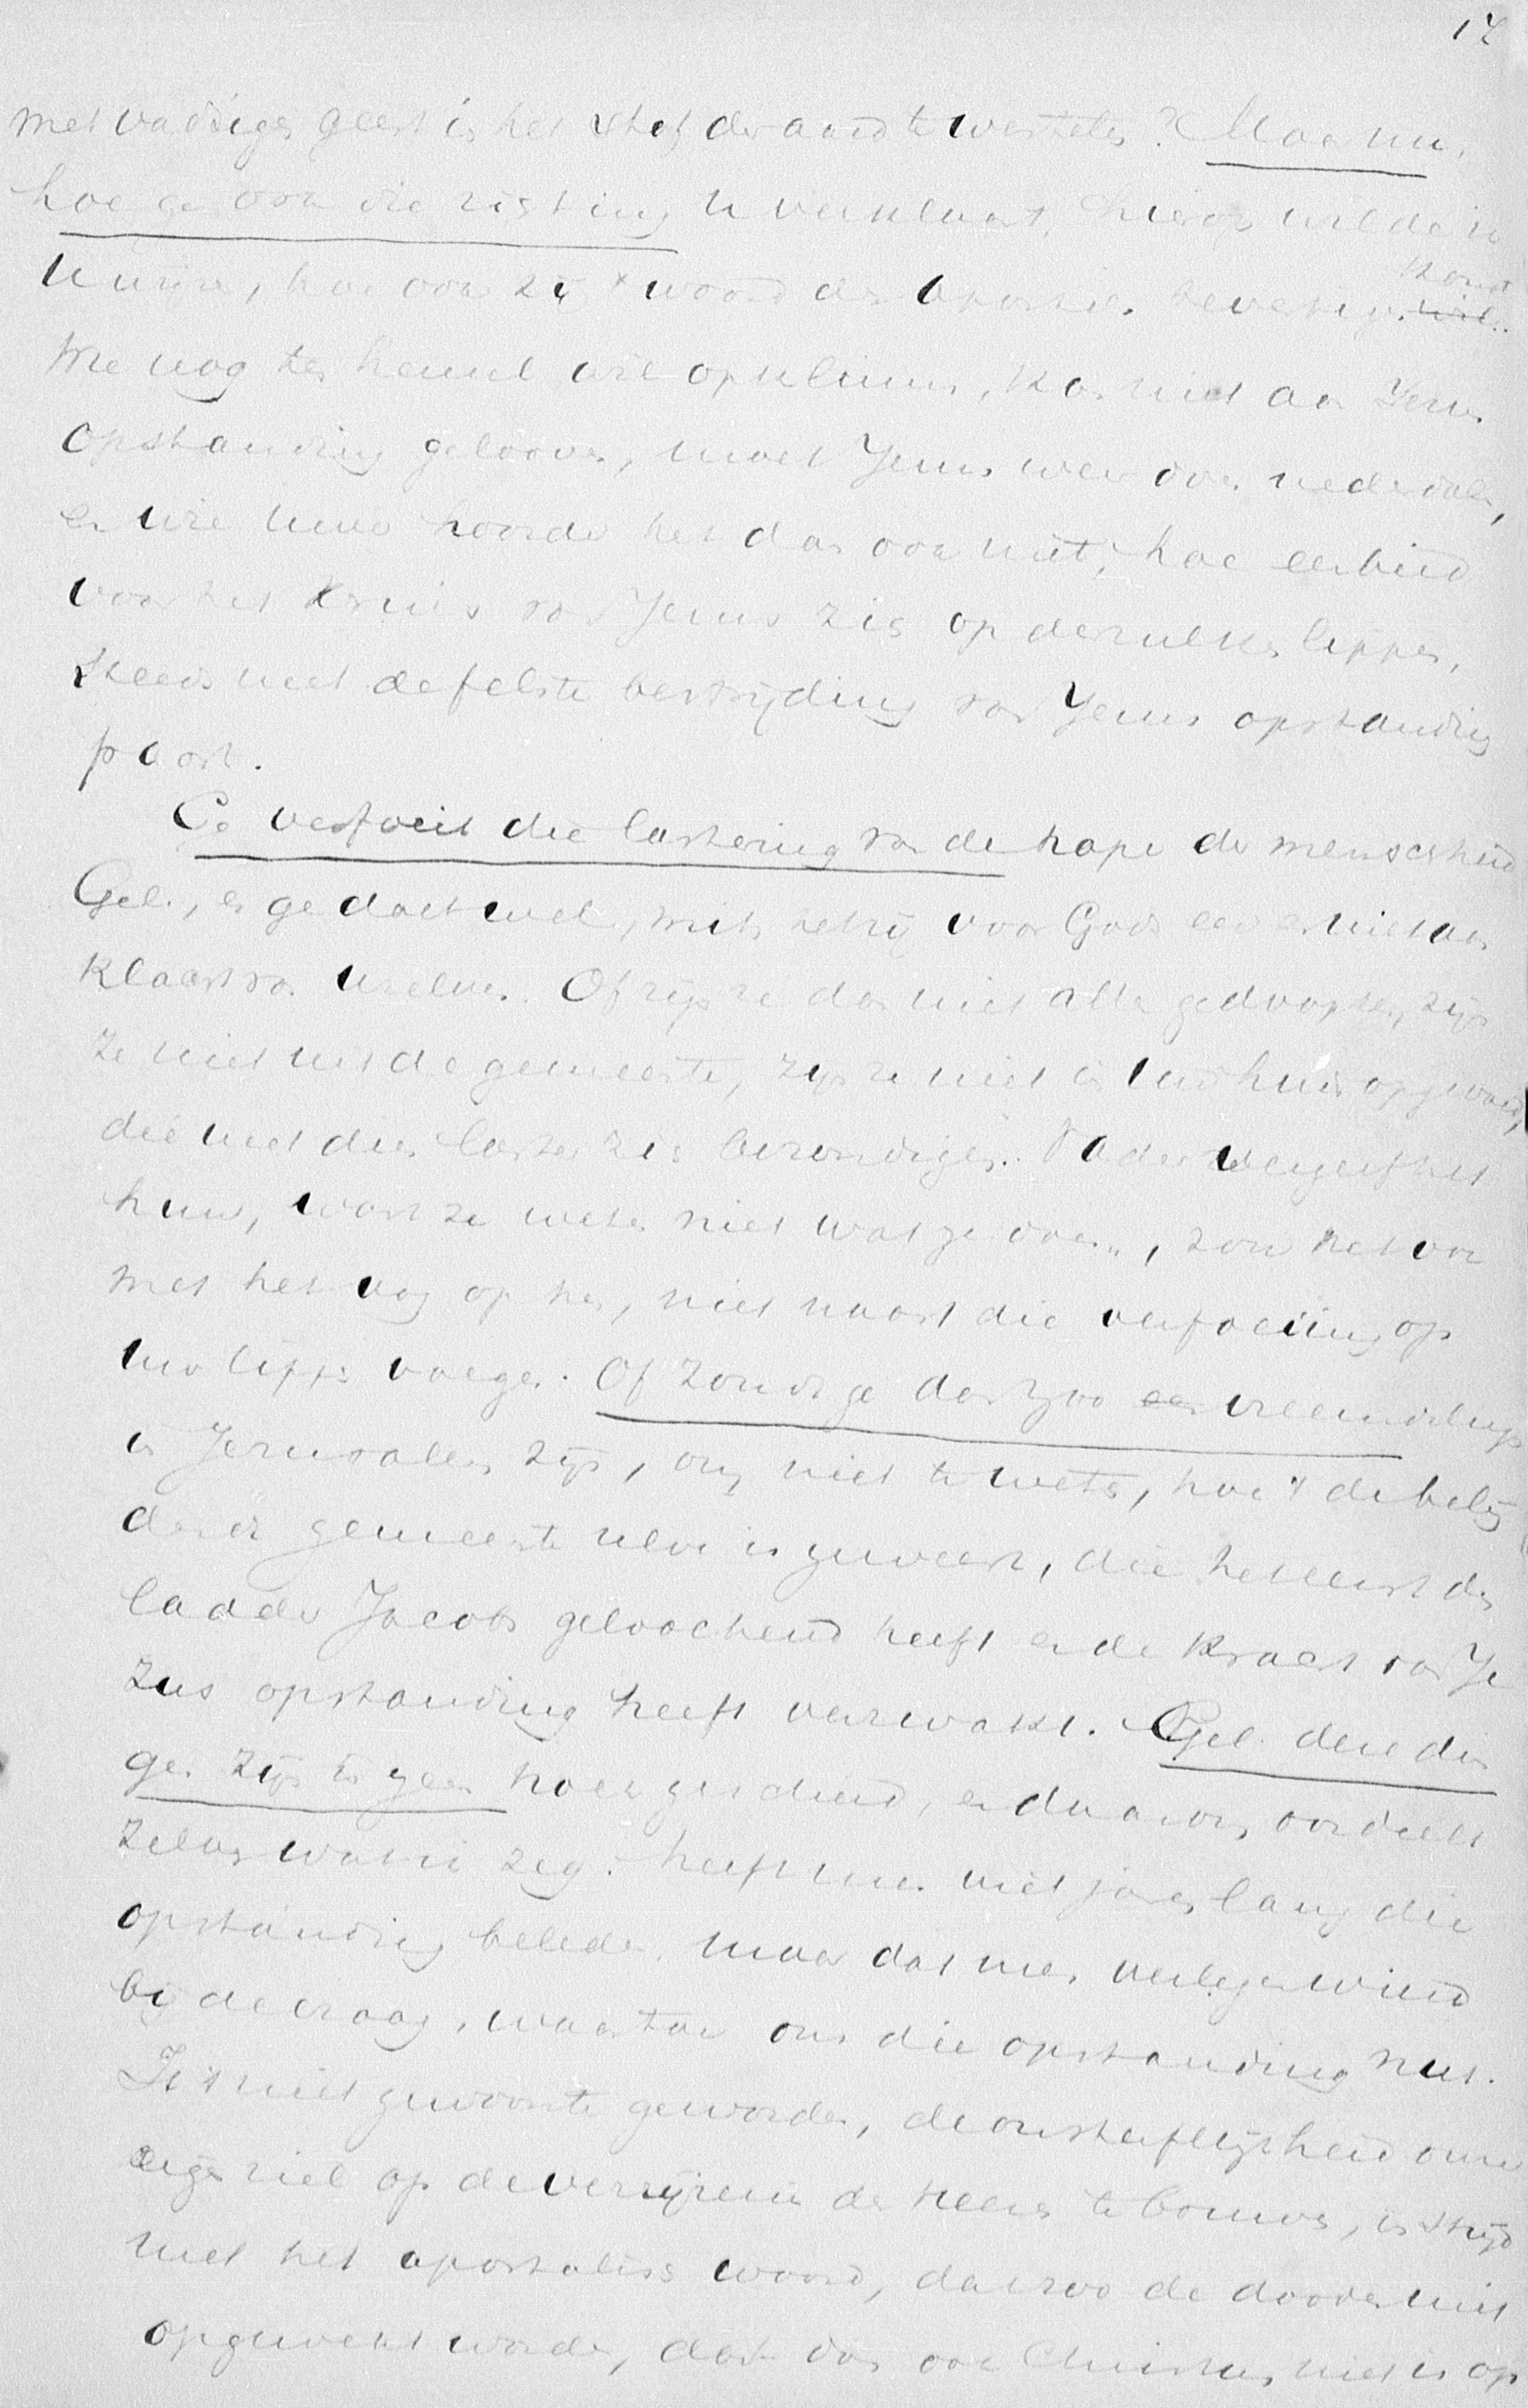 17
met vadsigen geest in het stof der aard te wortelen? Maar nu,
hoe ge ook die rigting u verklaart, hierop wilde ik
u wijzen, hoe ook zij 't woord des Apostels bevestigen komt
Wie nog ten hemel wil opklimmen, kan niet aan Jezus
opstanding gelooven, moet Jezus weer doen nederdalen,
en wie uwer hoorde het dan ook niet, hoe eerbied
voor het kruis van Jezus zich op der lippen,
steeds met de felste bestrijding van Jezus opstanding
paart.
Ge verfoeit die lastering van de hope der menschheid
Gel., en ge doet wel, mits het zij voor Gods eer en niet aan
klaart van uzelven. Of zijn ze dan niet allen gedoopten, zijn
ze niet uit de gemeente, zijn ze niet in uw huis opgevoed,
die met dien laster zich bezondigen. Vader vergeef het
hun, want ze weten niet wat ze doen", zou het ook
met het oog op hen, niet naast die verfoeiing op
uw lippen voegen. Of zoudt ge dan zoo vreemdeling
in Jerusalem zijn, om niet te weten, hoe 't de belij
der der gemeente zelve is geweest, die het eerst den
ladder Jacobs geloochend heeft en de kracht van Je
zus opstanding heeft verzwakt. Gel. deze din
gen zijn in geen hoek geschied, en daarom oordeelt
zelven wat ik zeg. heeft men niet jaren lang die
opstanding beleden, maar dat men verlegen wierd
bij de vraag, waartoe ons die opstanding nut.
Is 't niet gewoonte geworden, de onsterflijkheid onzer
eigen ziel op de verrijzenis des Heeren te bouwen, in strijd
met het apostolisch woord, dat zoo de dooden niet
opgewekt worden, dat dan ook Christus niet is op